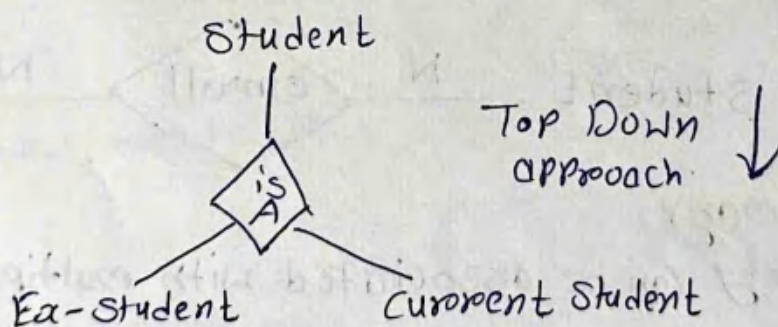 Student
Top Down
approach
is
A
Ex-Student
Current Student